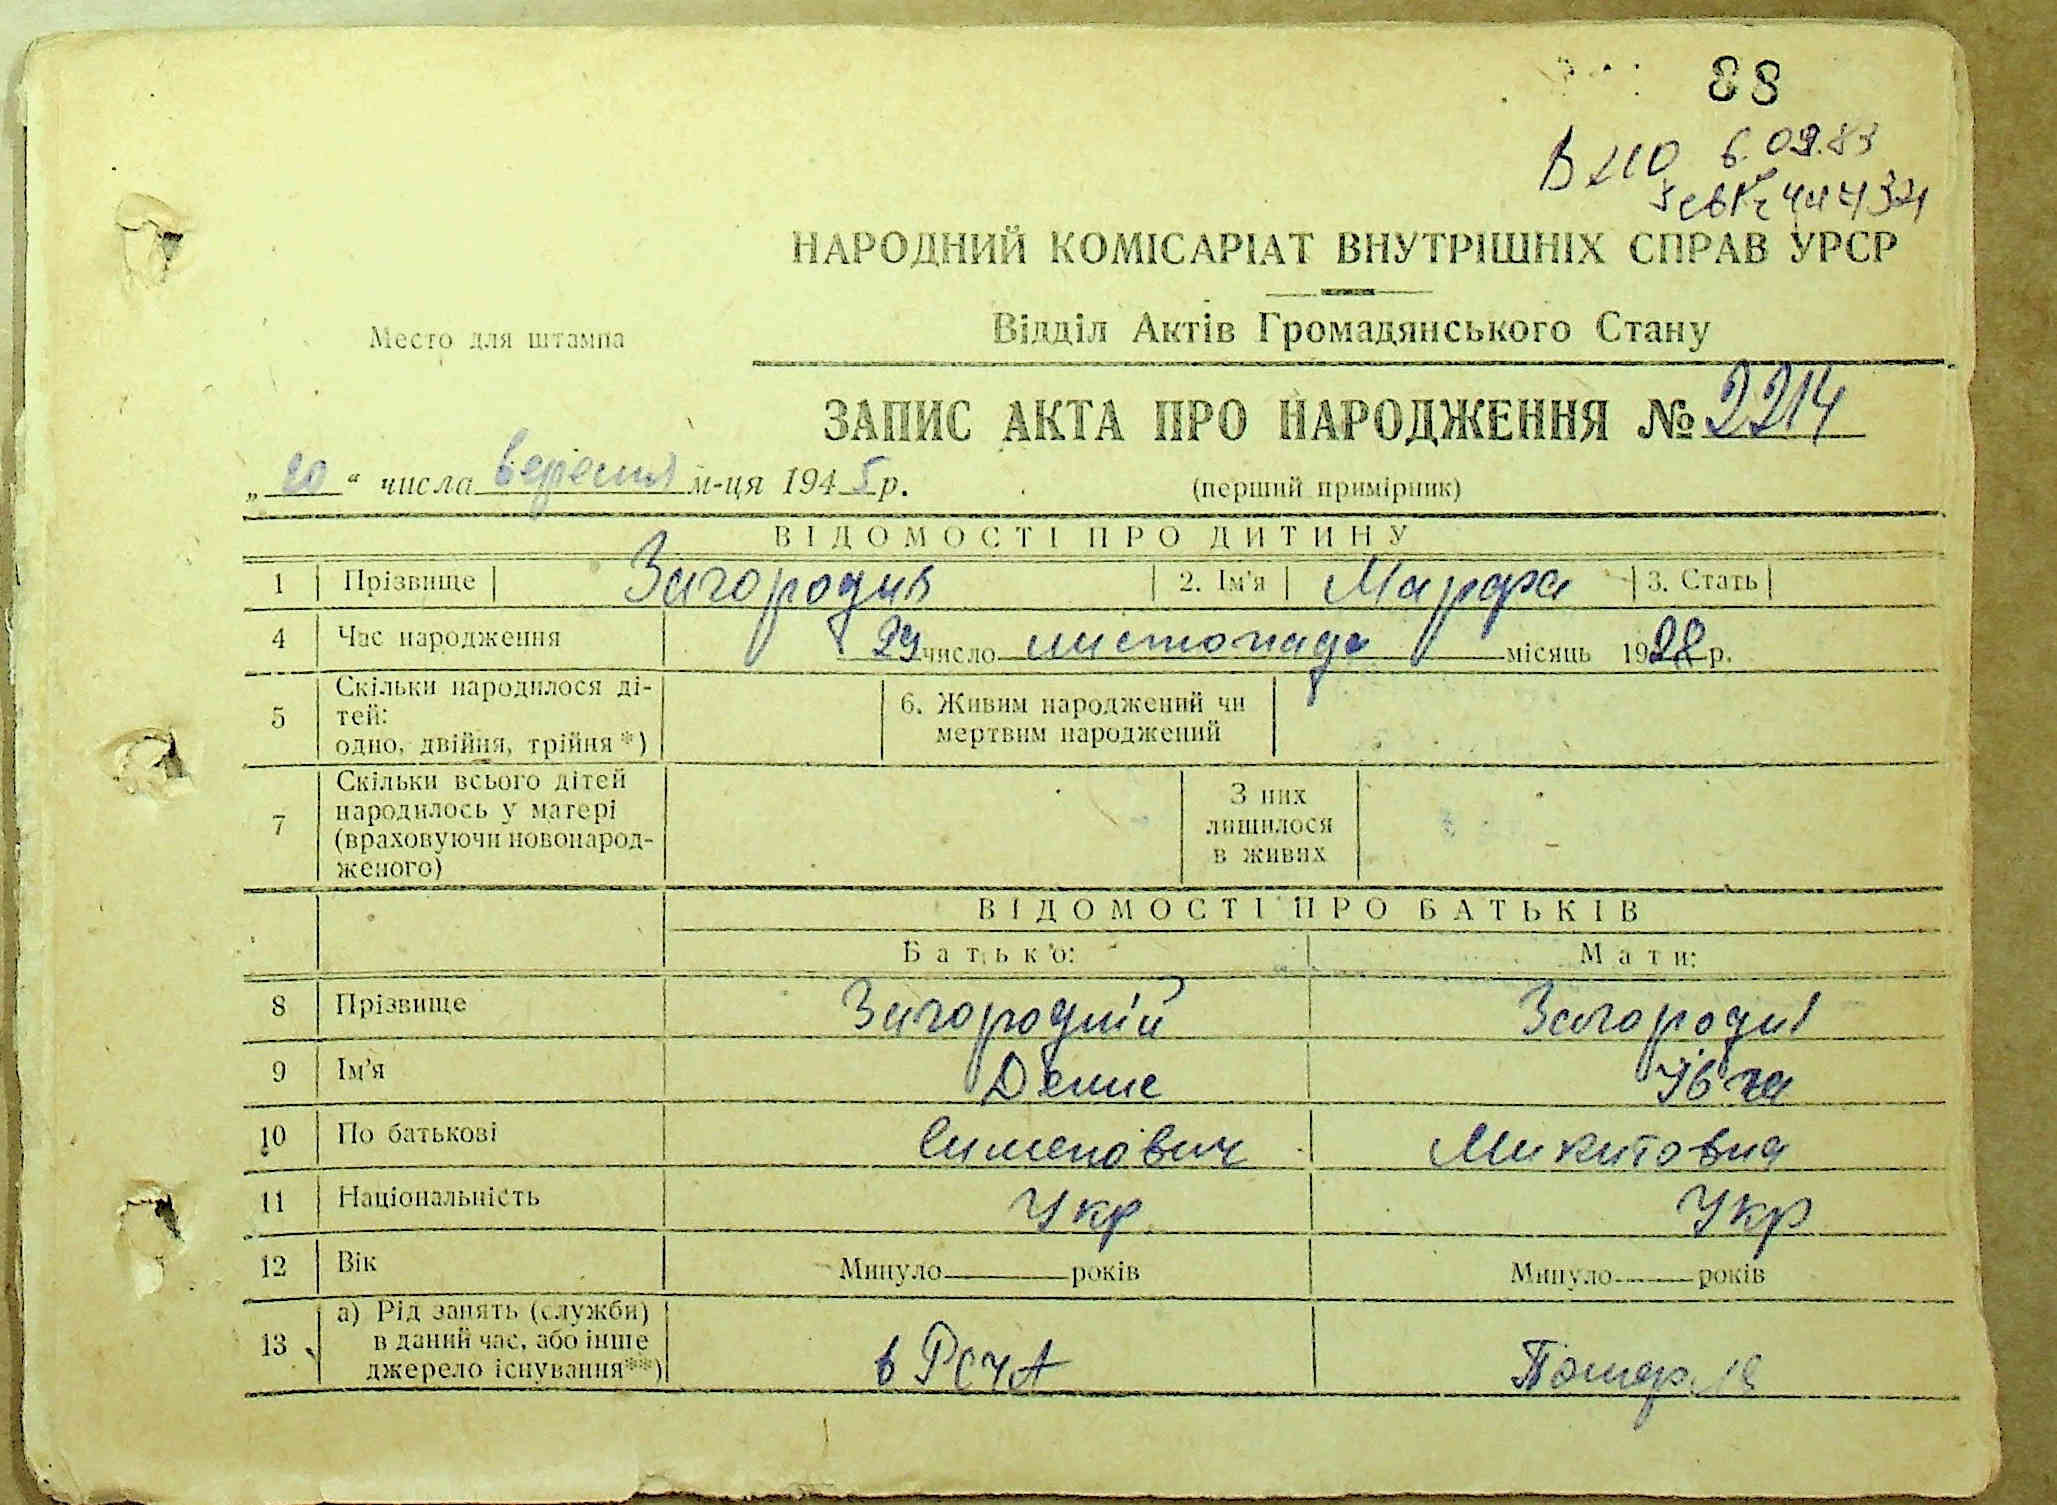 88
6.09.83
НАРОДНИЙ КОМІСАРІАТ ВНУТРІШНІХ СПРАВ УРСР
Место для штампа
Відділ Актів Громадянського Стану
ЗАПИС АКТА ПРО НАРОДЖЕННЯ № 2214
„20“ числа вересня м-ця 1945 р.
(перший примірник)
ВІДОМОСТІ ПРО ДИТИНУ
1 Прізвище Загородня 2. Ім'я Марфа 3. Стать
4 Час народження 29 число листопада місяць 1928 р.
5 Скільки народилося ді-
тей:
одно, двійня, трійня*)
6. Живим народжений чи
мертвим народжений
7 Скільки всього дітей
народилось у матері
(враховуючи новонарод-
женого)
З них
лишилося
в живих
ВІДОМОСТІ ПРО БАТЬКІВ
Батько: Мати:
8 Прізвище Загородній Загородня
9 Ім'я Денис
10 По батькові Сименович Микитовна
11 Національність Укр Укр
12 Вік Минуло років Минуло років
13 а) Рід занять (служби)
в даний час, або інше
джерело існування**)
в РСЧА Помер